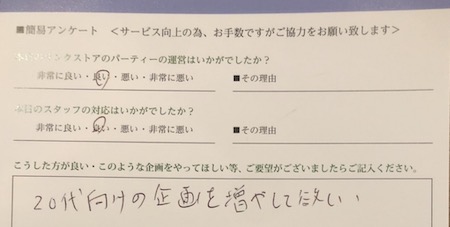 ■簡易アンケート ＜サービス向上の為、お手数ですがご協力をお願い致します＞
ンクストアのパーティーの運営はいかがでしたか？
非常に良い・良い・悪い・非常に悪い ■その理由
のスタッフの対応はいかがでしたか？
非常に良い・良い・悪い・非常に悪い ■その理由
こうした方が良い・このような企画をやってほしい等、ご要望がございましたらご記入ください。
20代向けの企画を増やして欲しい